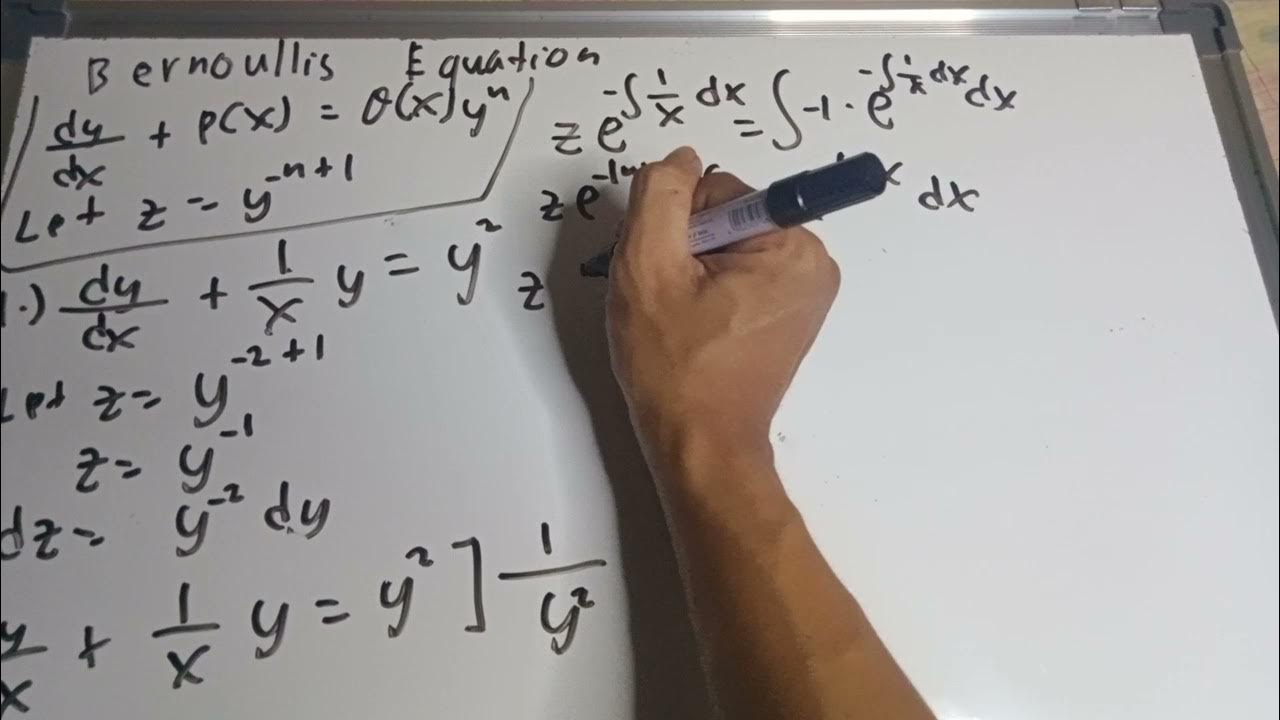 Bernoullis Equation
dy/dx + p(x) = Q(x)y^n
Let z = y^-n+1
1.) dy/dx + 1/x y = y^2
Let z = y^-2+1
z = y^-1
dz = y^-2 dy
+ 1/x y = y^2 ] 1/y^2
z e^-∫1/x dx = ∫-1 · e^-∫1/x dx dx
z e dx
z